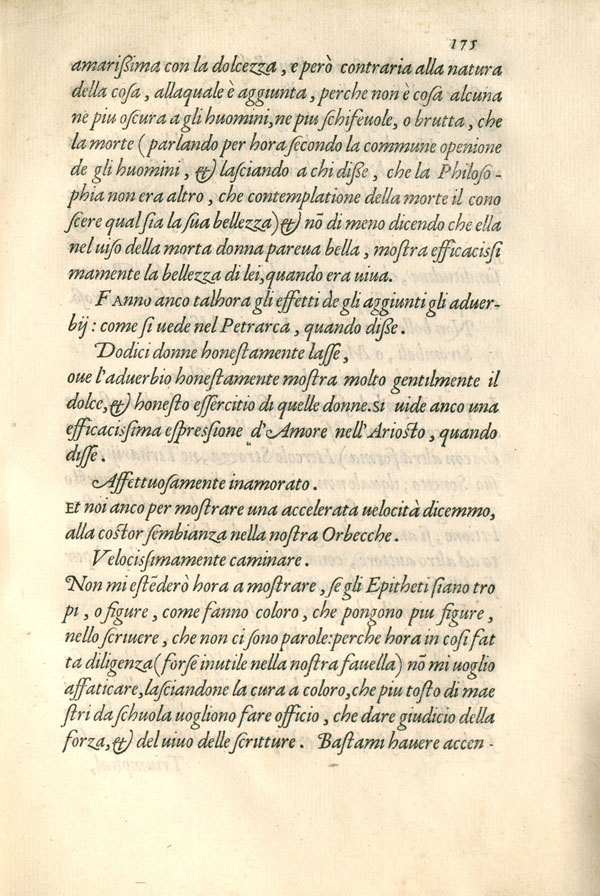 175
amarißima con la dolcezza, e però contraria alla natura
della cosa, allaquale è aggiunta, perche non è cosa alcuna
ne piu oscura a gli huomini, ne piu schifeuole, o brutta, che
la morte (parlando per hora secondo la commune openione
de gli huomini, &) lasciando a chi diße, che la Philoso-
phia non era altro, che contemplatione della morte il cono
scere qual sia la sua bellezza) &) nõ di meno dicendo che ella
nel uiso della morta donna pareua bella, mostra efficacissi
mamente la bellezza di lei, quando era uiua.
FANNO anco talhora gli effetti de gli aggiunti gli aduer-
bij: come si uede nel Petrarca, quando diße.
Dodici donne honestamente lasse,
oue l'aduerbio honestamente mostra molto gentilmente il
dolce, &) honesto essercitio di quelle donne. SI uide anco una
efficacissima espressione d'Amore nell'Ariosto, quando
disse.
Affettuosamente inamorato.
ET noi anco per mostrare una accelerata uelocità dicemmo,
alla costor sembianza nella nostra Orbecche.
Velocissimamente caminare.
Non mi estederò hora a mostrare, se gli Epitheti siano tro
pi, o figure, come fanno coloro, che pongono piu figure,
nello scriuere, che non ci sono parole: perche hora in cosi fat
ta diligenza (forse inutile nella nostra fauella) nõ mi uoglio
affaticare, lasciandone la cura a coloro, che piu tosto di mae
stri da schuola uogliono fare officio, che dare giudicio della
forza, &) del uiuo delle scritture. Bastami hauere accen-